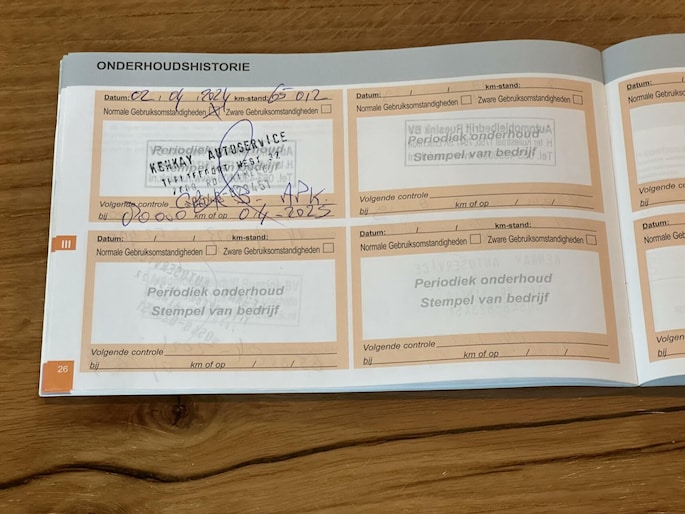 ONDERHOUDSHISTORIE
Datum: 02 / 04 / 2024 km-stand: 65 012
Normale Gebruiksomstandigheden Zware Gebruiksomstandigheden
Periodiek onderhoud
KEHKAY AUTOSERVICE
Stempel van bedrijf
Volgende controle APK.
bij km of op 04-2025
Datum: / / km-stand:
Normale Gebruiksomstandigheden Zware Gebruiksomstandigheden
Periodiek onderhoud
Stempel van bedrijf
Volgende controle
bij km of op / /
Datum: / / km-stand:
Normale Gebruiksomstandigheden Zware Gebruiksomstandigheden
Periodiek onderhoud
Stempel van bedrijf
Volgende controle
bij km of op / /
Datum: / / km-stand:
Normale Gebruiksomstandigheden Zware Gebruiksomstandigheden
Periodiek onderhoud
Stempel van bedrijf
Volgende controle
bij km of op / /
III
26
Datum:
Normale
Volgende
bij
Datum:
Normale G
Volgende
bij